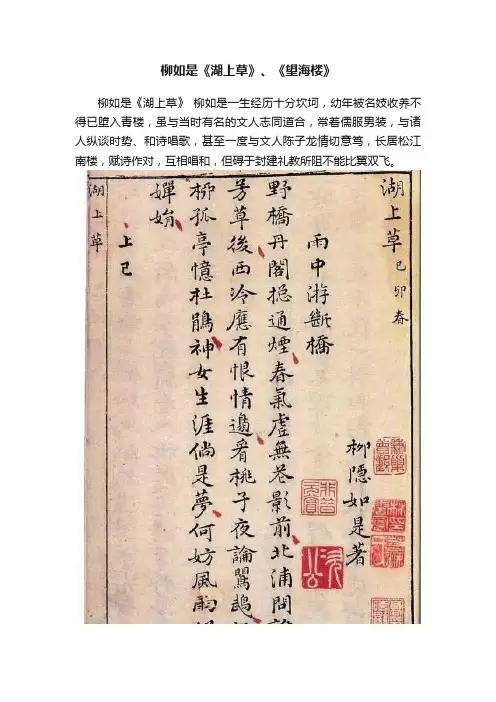 柳如是《湖上草》、《望海楼》
柳如是《湖上草》 柳如是一生经历十分坎坷，幼年被名妓收养不
得已堕入青楼，虽与当时有名的文人志同道合，常着儒服男装，与诸
人纵谈时势、和诗唱歌，甚至一度与文人陈子龙情切意笃，长居松江
南楼，赋诗作对，互相唱和，但碍于封建礼教所阻不能比翼双飞。
湖上草 己卯春
柳隱如是著
雨中游斷橋
野橋丹閣捴通煙春氣虛無花影前北浦問
芳草後西泠應有恨情邊看桃子夜論
柳孤亭憶杜鵑神女生涯倘是夢何妨風雨
嬋娟
上巳
湖上草